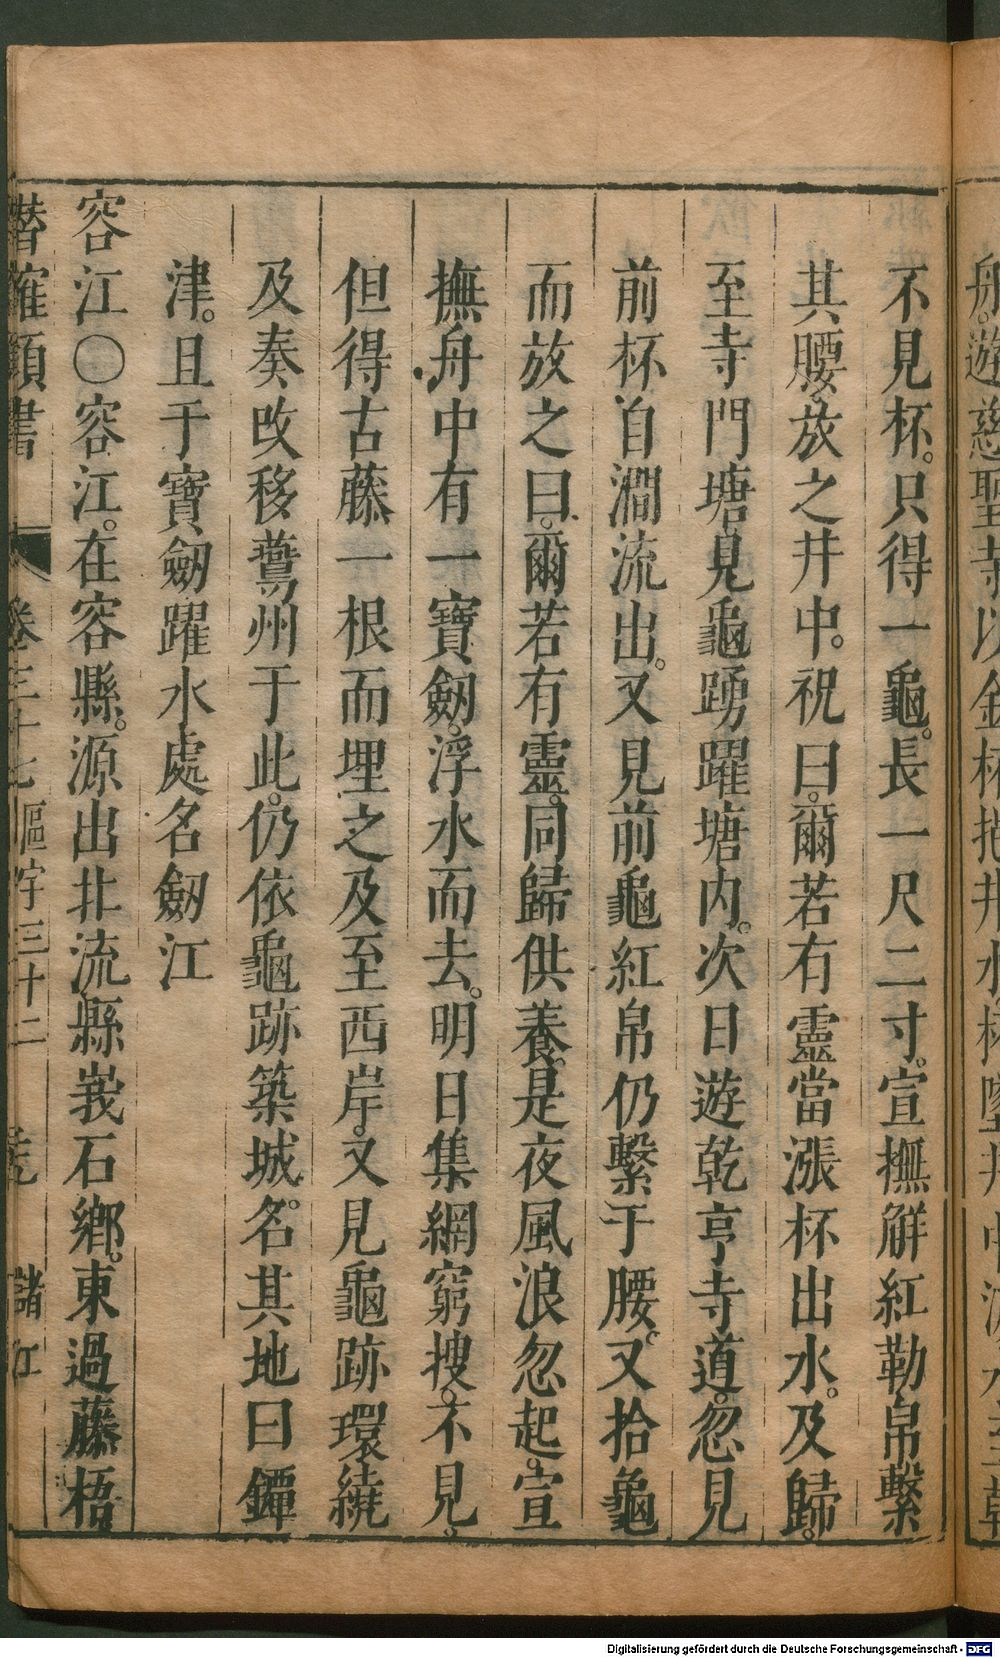 舟遊慈聖寺以金杯
不見杯。只得一龜。長一尺二寸。宣撫解紅勒帛繫
其腰。放之井中。祝曰。爾若有靈當漲杯出水。及歸。
至寺門塘見龜踴躍塘内。次日遊乾亨寺道。忽見
前杯自澗流出。又見前龜紅帛仍繫于腰。又拾龜
而放之曰。爾若有靈。同歸供養。是夜風浪忽起。宣
撫舟中有一寶劒。浮水而去。明日集網窮搜。不見。
但得古藤一根而埋之及至西岸。又見龜跡環繞
及奏改移鷰州于此。仍依龜跡築城。名其地曰鐔
津。且于寶劒躍水處名劒江
容江〇容江。在容縣。源出北流縣峩石鄉。東過藤梧
潛確類書 卷三十七 區宇三十二 諸江
Digitalisierung gefördert durch die Deutsche Forschungsgemeinschaft - DFG